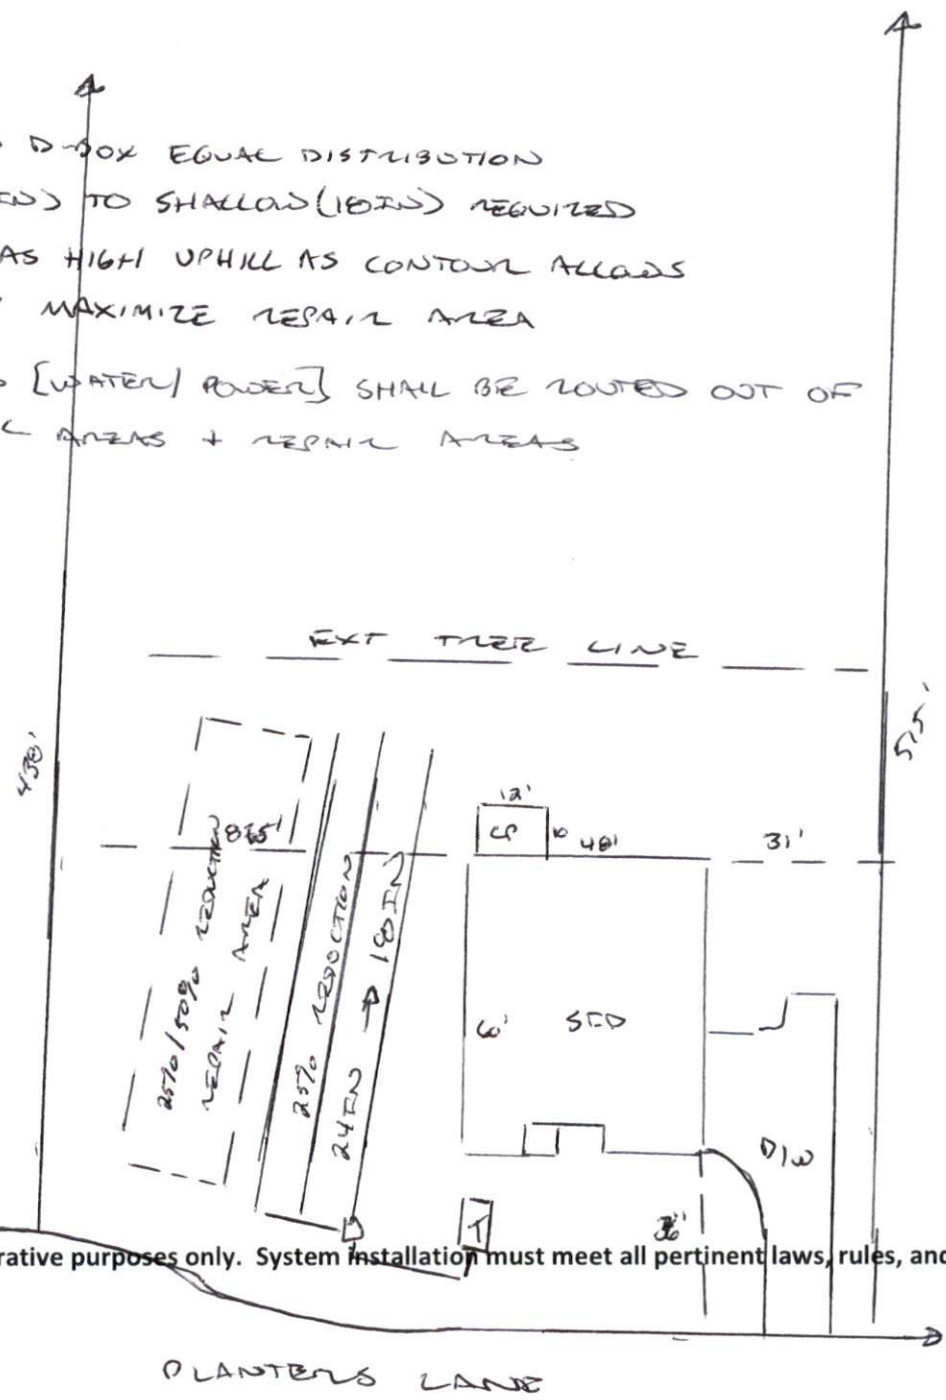 D-BOX EQUAL DISTRIBUTION
TO SHALLOW (18IN) REQUIRED
AS HIGH UPHILL AS CONTOUR ALLOWS
MAXIMIZE REPAIR AREA
[WATER/ POWER] SHALL BE ROUTED OUT OF
AREAS + REPAIR AREAS
EXT TREE LINE
430'
515'
12'
CP
10
48'
31'
25%/50% REDUCTION
REPAIR AREA
25% REDUCTION
24IN → 18IN
60'
SFD
D/W
D
T
36'
rative purposes only. System installation must meet all pertinent laws, rules, and
PLANTERS LANE